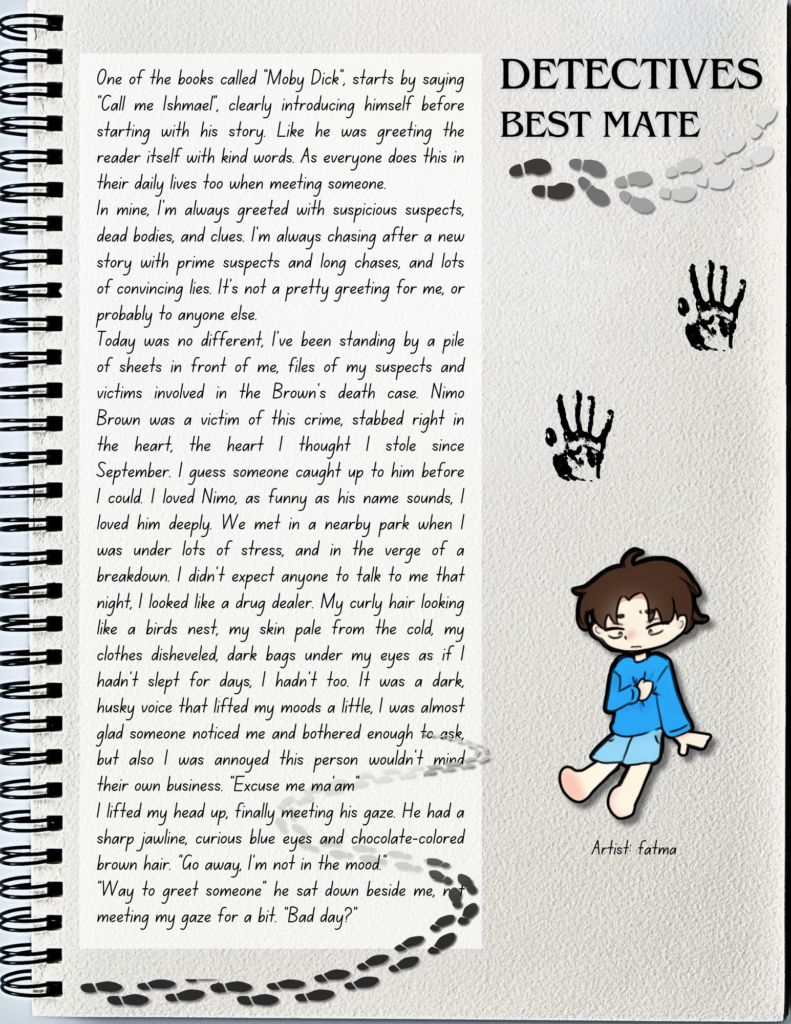 DETECTIVES
BEST MATE
One of the books called "Moby Dick", starts by saying
"Call me Ishmael", clearly introducing himself before
starting with his story. Like he was greeting the
reader itself with kind words. As everyone does this in
their daily lives too when meeting someone.
In mine, I'm always greeted with suspicious suspects,
dead bodies, and clues. I'm always chasing after a new
story with prime suspects and long chases, and lots
of convincing lies. It's not a pretty greeting for me, or
probably to anyone else.
Today was no different, I've been standing by a pile
of sheets in front of me, files of my suspects and
victims involved in the Brown's death case. Nimo
Brown was a victim of this crime, stabbed right in
the heart, the heart I thought I stole since
September. I guess someone caught up to him before
I could. I loved Nimo, as funny as his name sounds, I
loved him deeply. We met in a nearby park when I
was under lots of stress, and in the verge of a
breakdown. I didn't expect anyone to talk to me that
night, I looked like a drug dealer. My curly hair looking
like a birds nest, my skin pale from the cold, my
clothes disheveled, dark bags under my eyes as if I
hadn't slept for days, I hadn't too. It was a dark,
husky voice that lifted my moods a little, I was almost
glad someone noticed me and bothered enough to ask,
but also I was annoyed this person wouldn't mind
their own business. "Excuse me ma'am"
I lifted my head up, finally meeting his gaze. He had a
sharp jawline, curious blue eyes and chocolate-colored
brown hair. "Go away, I'm not in the mood."
"Way to greet someone" he sat down beside me, not
meeting my gaze for a bit. "Bad day?"
Artist: fatma